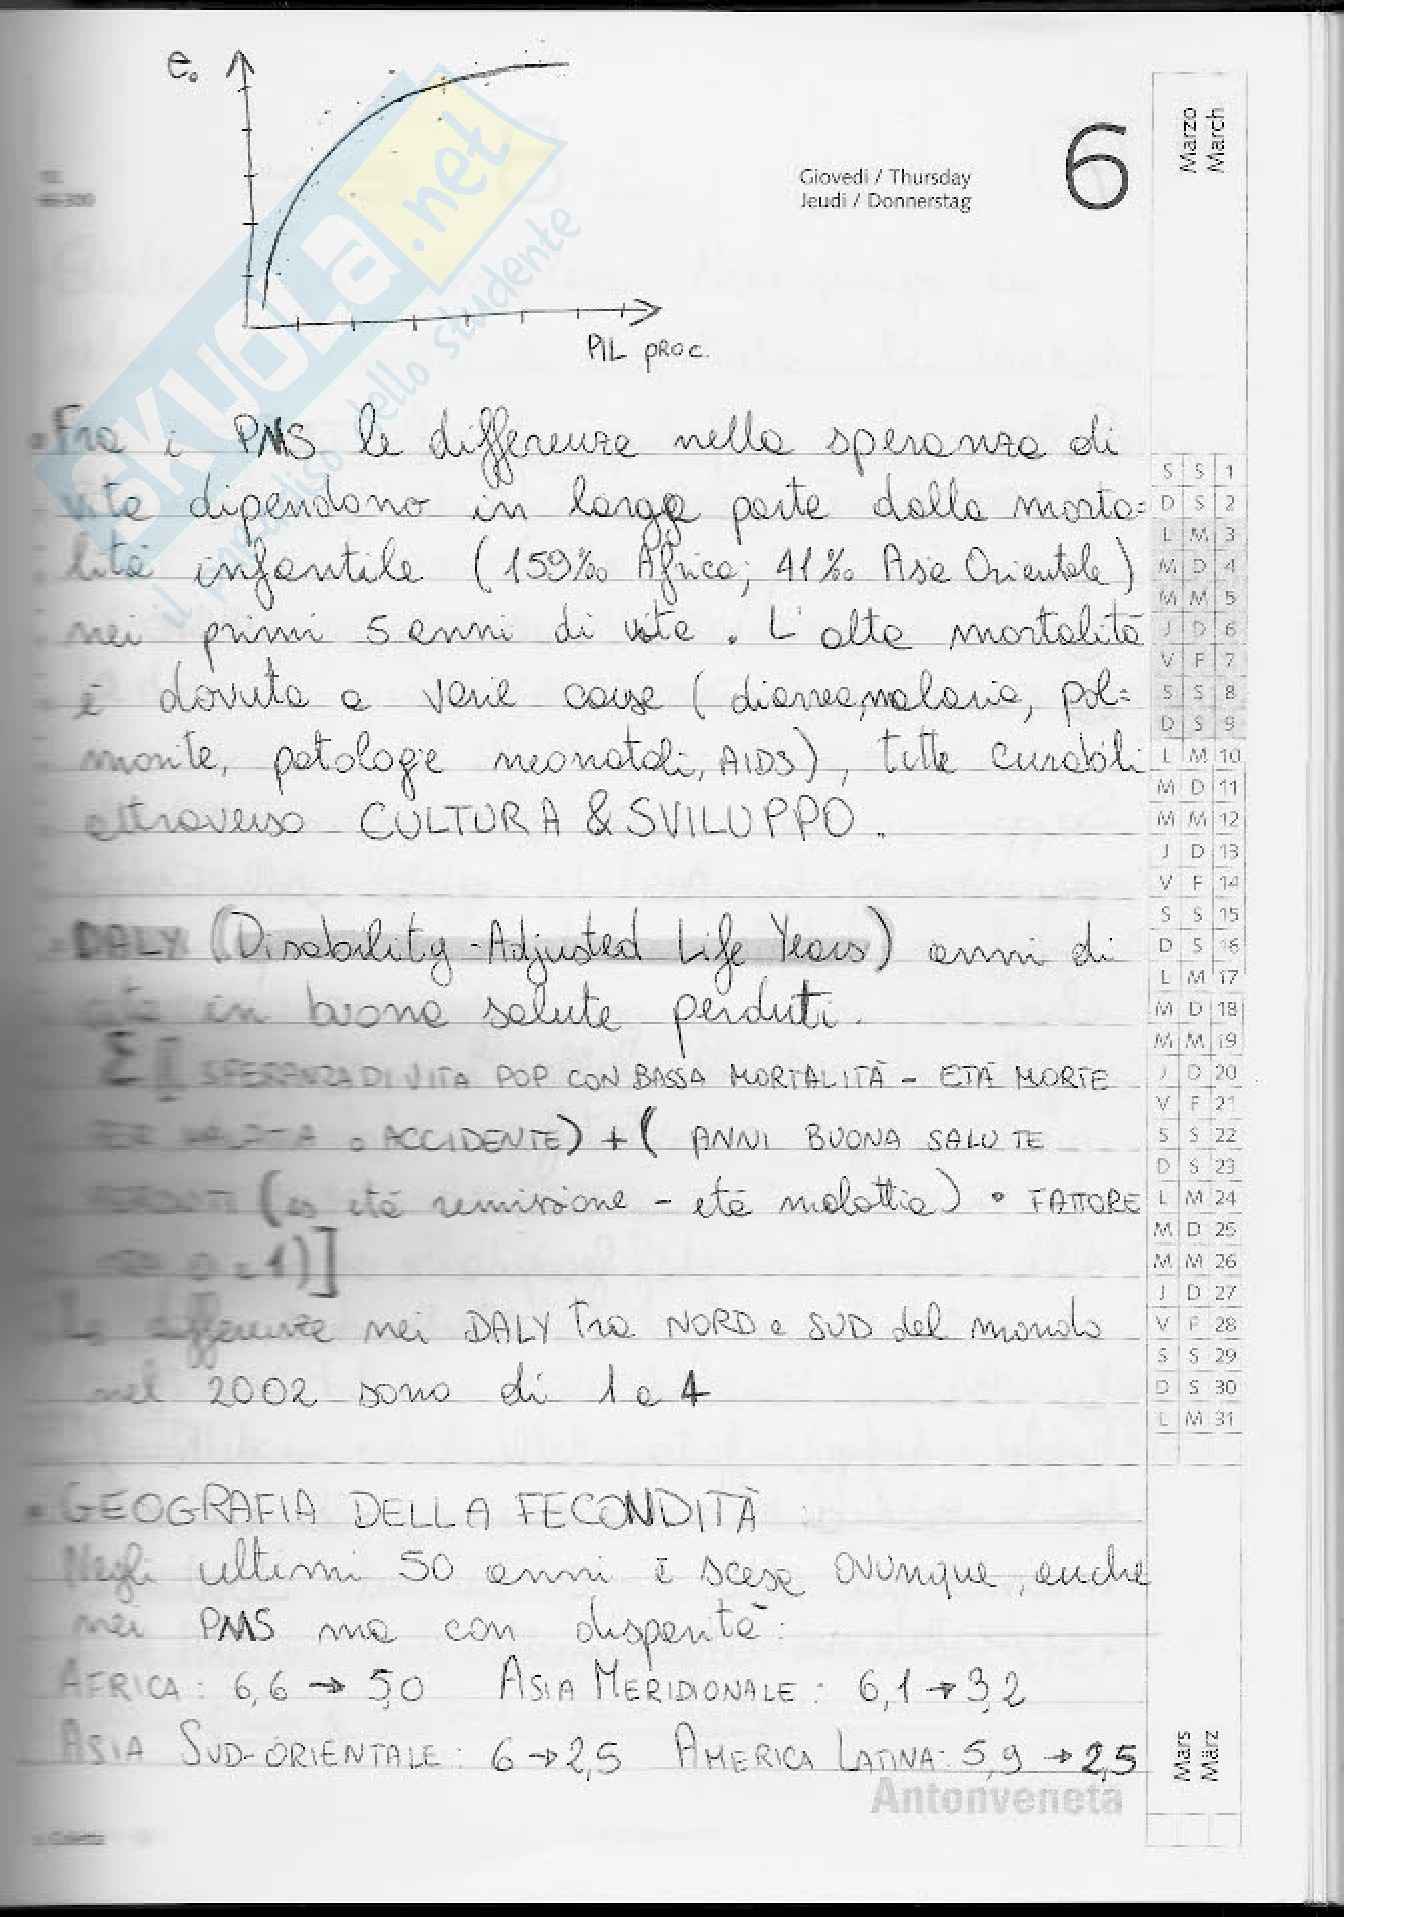 e₀
PIL proc.
SKUOLA.net
il paradiso dello studente
Giovedì / Thursday
Jeudi / Donnerstag
6
Marzo
March
• Fra i PMS le differenze nella speranza di
vita dipendono in larga parte dalla morta=
lità infantile (159‰ Africa; 41‰ Asia Orientale)
nei primi 5 anni di vita. L'alta mortalità
è dovuta a varie cause (diarrea, malaria, pol=
monite, patologie neonatali, AIDS), tutte curabili
attraverso CULTURA & SVILUPPO.
• DALY (Disability-Adjusted Life Years) anni di
vita in buona salute perduti.
Σ [( SPERANZA DI VITA POP CON BASSA MORTALITÀ - ETÀ MORTE
PER MALATTIA o ACCIDENTE) + ( ANNI BUONA SALUTE
PERDUTI (es età remissione - età malattia) • FATTORE
0 e 1)]
Le differenze nei DALY tra NORD e SUD del mondo
nel 2002 sono di 1 a 4
• GEOGRAFIA DELLA FECONDITÀ :
Negli ultimi 50 anni è scesa ovunque, anche
nei PMS ma con disparità:
AFRICA: 6,6 → 5,0 ASIA MERIDIONALE: 6,1 → 3,2
ASIA SUD-ORIENTALE: 6 → 2,5 AMERICA LATINA: 5,9 → 2,5
Antonveneta
S S 1
D S 2
L M 3
M D 4
M M 5
J D 6
V F 7
S S 8
D S 9
L M 10
M D 11
M M 12
J D 13
V F 14
S S 15
D S 16
L M 17
M D 18
M M 19
J D 20
V F 21
S S 22
D S 23
L M 24
M D 25
M M 26
J D 27
V F 28
S S 29
D S 30
L M 31
Mars
März